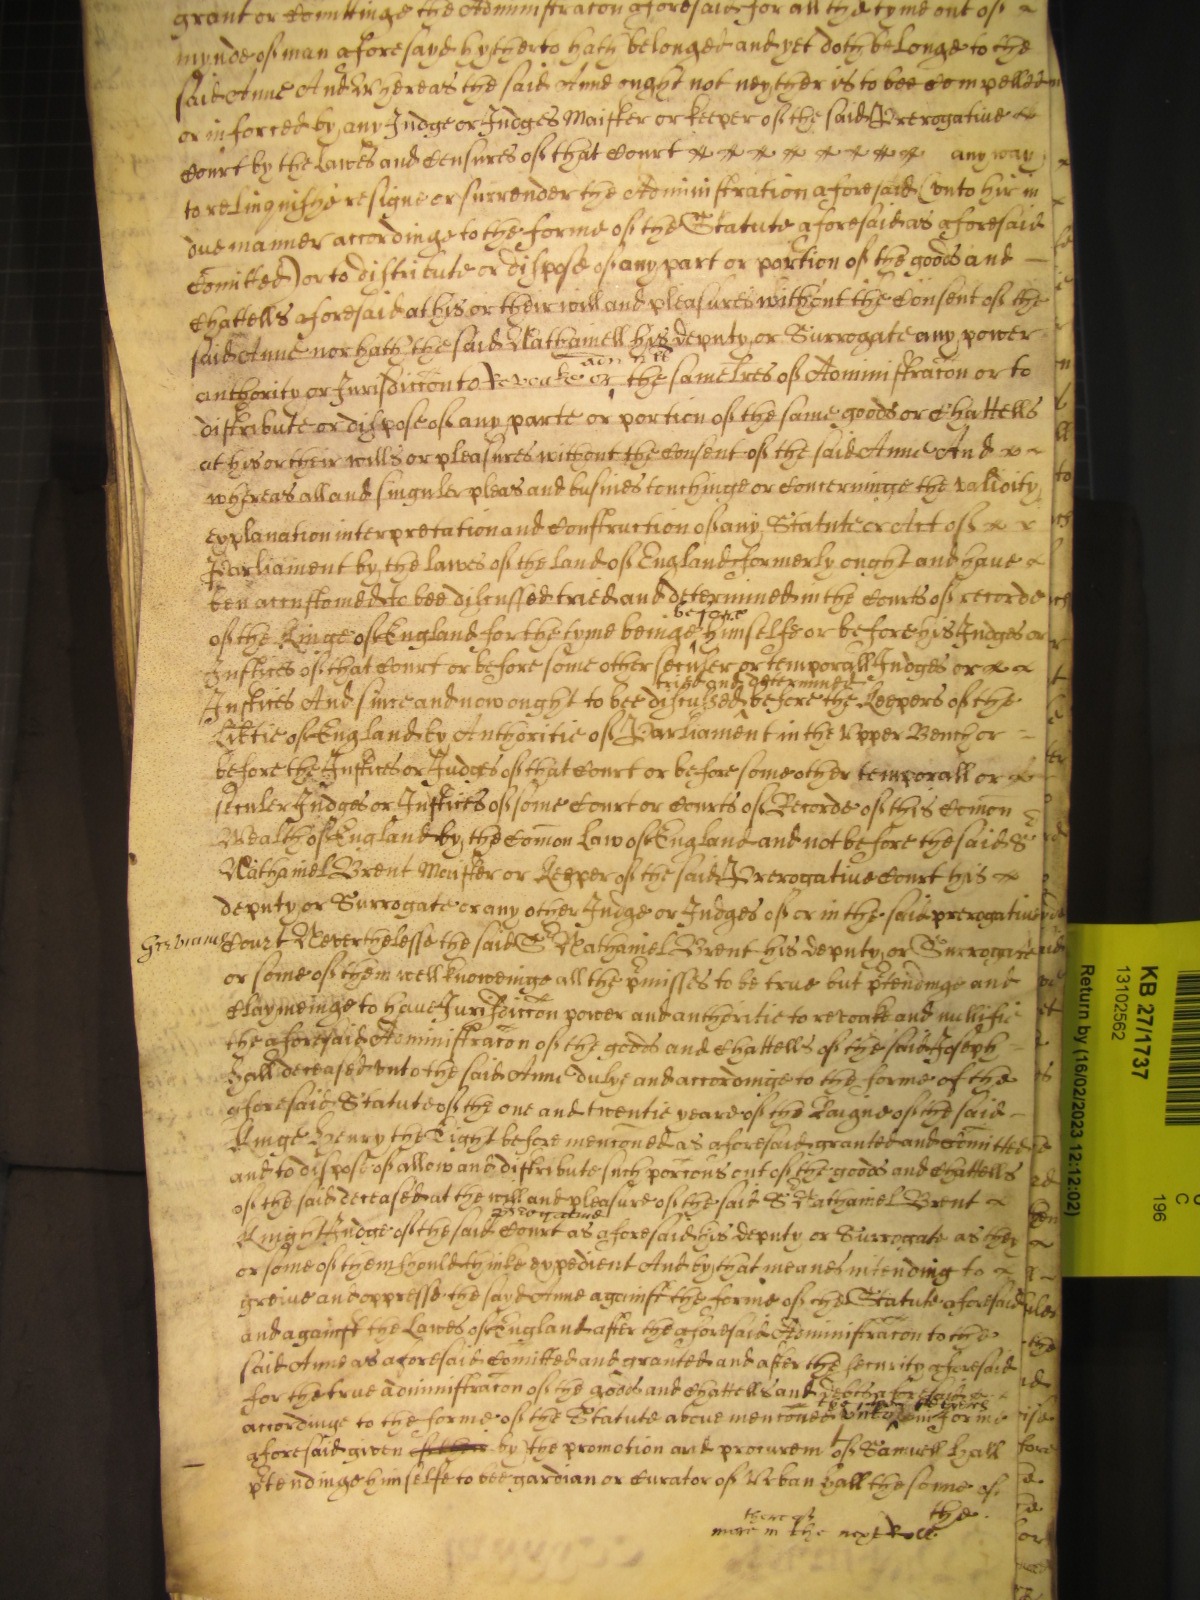 grant or Comittinge the Administracon aforesaid for all the tyme out of
mynde of man aforesayd hytherto hath belonged and yet doth belonge to the
said Anne And Whereas the said Anne ought not neyther is to bee Compelled
or inforced by any Judge or Judges Maister or keeper of the said Prerogative
Court by the Lawes and Censures of that Court any way
to relinquishe resigne or surrender the Administration aforesaid (unto hir in
due manner accordinge to the forme of the Statute aforesaid as aforesaid
Comitted) or to distribute or dispose of any part or portion of the goods and
Chattells aforesaid at his or their will and pleasures without the Consent of the
said Anne nor hath the said Nathaniell his deputy or Surrogate any power
authority or Jurisdiccon to revoake or adnull the same lres of Administracon or to
distribute or dispose of any parte or portion of the same goods or Chattells
at his or their wills or pleasures without the Consent of the said Anne And
whereas all and singuler pleas and busines touchinge or Concerninge the validity
explanation interpretation and Construction of any Statute or Act of
Parliament by the lawes of the land of England formerly ought and have
ben accustomed to bee discussed tried and determined in the Courts of recorde
of the Kinge of England for the tyme beinge before himselfe or before his Judges or
Justices of that Court or before some other seculer or temporall Judges or
Justices And since and now ought to bee discussed tried and determined before the Keepers of the
Libtie of England by Authoritie of Parliament in the Upper Bench or
before the Justices or Judges of that Court or before some other temporall or
seculer Judges or Justices of some Court or Courts of Recorde of this Comon
Wealth of England by the Comon Law of England and not before the said Sr
Nathaniel Brent Maister or Keeper of the said Prerogative Court his
deputy or Surrogate or any other Judge or Judges of or in the said prerogative
Court Neverthelesse the said Sr Nathaniel Brent his deputy or Surrogate
or some of them well knoweinge all the pmisses to be true but ptendinge and
Claymeinge to have Jurisdiccon power and authoritie to revoake and nullifie
the aforesaid Administracon of the goods and Chattells of the said Joseph
Hall deceased unto the said Anne dulye and accordinge to the forme of the
aforesaid Statute of the one and twentie yeare of the Raigne of the said
Kinge Henry the Eight before menconed as aforesaid granted and Comitted
and to dispose of allow and distribute such porcons out of the goods and Chattells
of the said deceased at the will and pleasure of the said Sr Nathaniel Brent
Knight Judge of the said prerogative Court as aforesaid his deputy or Surrogate as they
or some of them should thinke expedient And by that meanes intending to
greive and oppresse the sayd Anne against the forme of the Statute aforesaid
and against the Lawes of England after the aforesaid Administracon to the
said Anne as aforesaid Comitted and granted and after the security aforesaid
for the true administracon of the goods and Chattells and debts aforesaid
accordinge to the forme of the Statute above menconed unto in forme
aforesaid given by the promotion and procurem t of Samuell Hall
ptendinge himselfe to bee gardian or Curator of Urban Hall the sonne of
the
more thereof in the next Roll
KB 27/1737
13102562
Return by (16/02/2023 12:12:02)
196
C